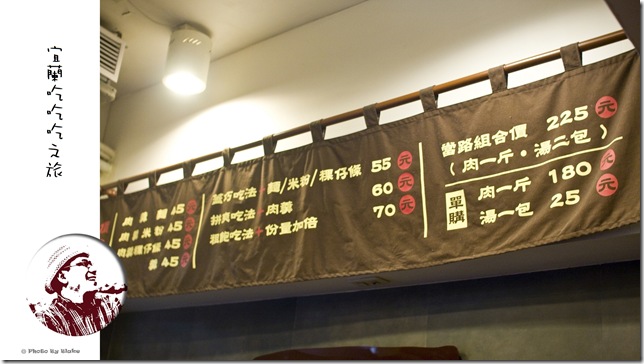 宜蘭吃吃吃之旅
肉羹麵 45 元
肉羹米粉 45 元
肉羹粿仔條 45 元
羹 45 元
吃巧吃法 麵/米粉/粿仔條 55 元
拼爽吃法+肉羹 60 元
粗飽吃法+份量加倍 70 元
當路組合價 225 元
(肉一斤・湯二包)
單購
肉一斤 180 元
湯一包 25 元
© Photo By Blake